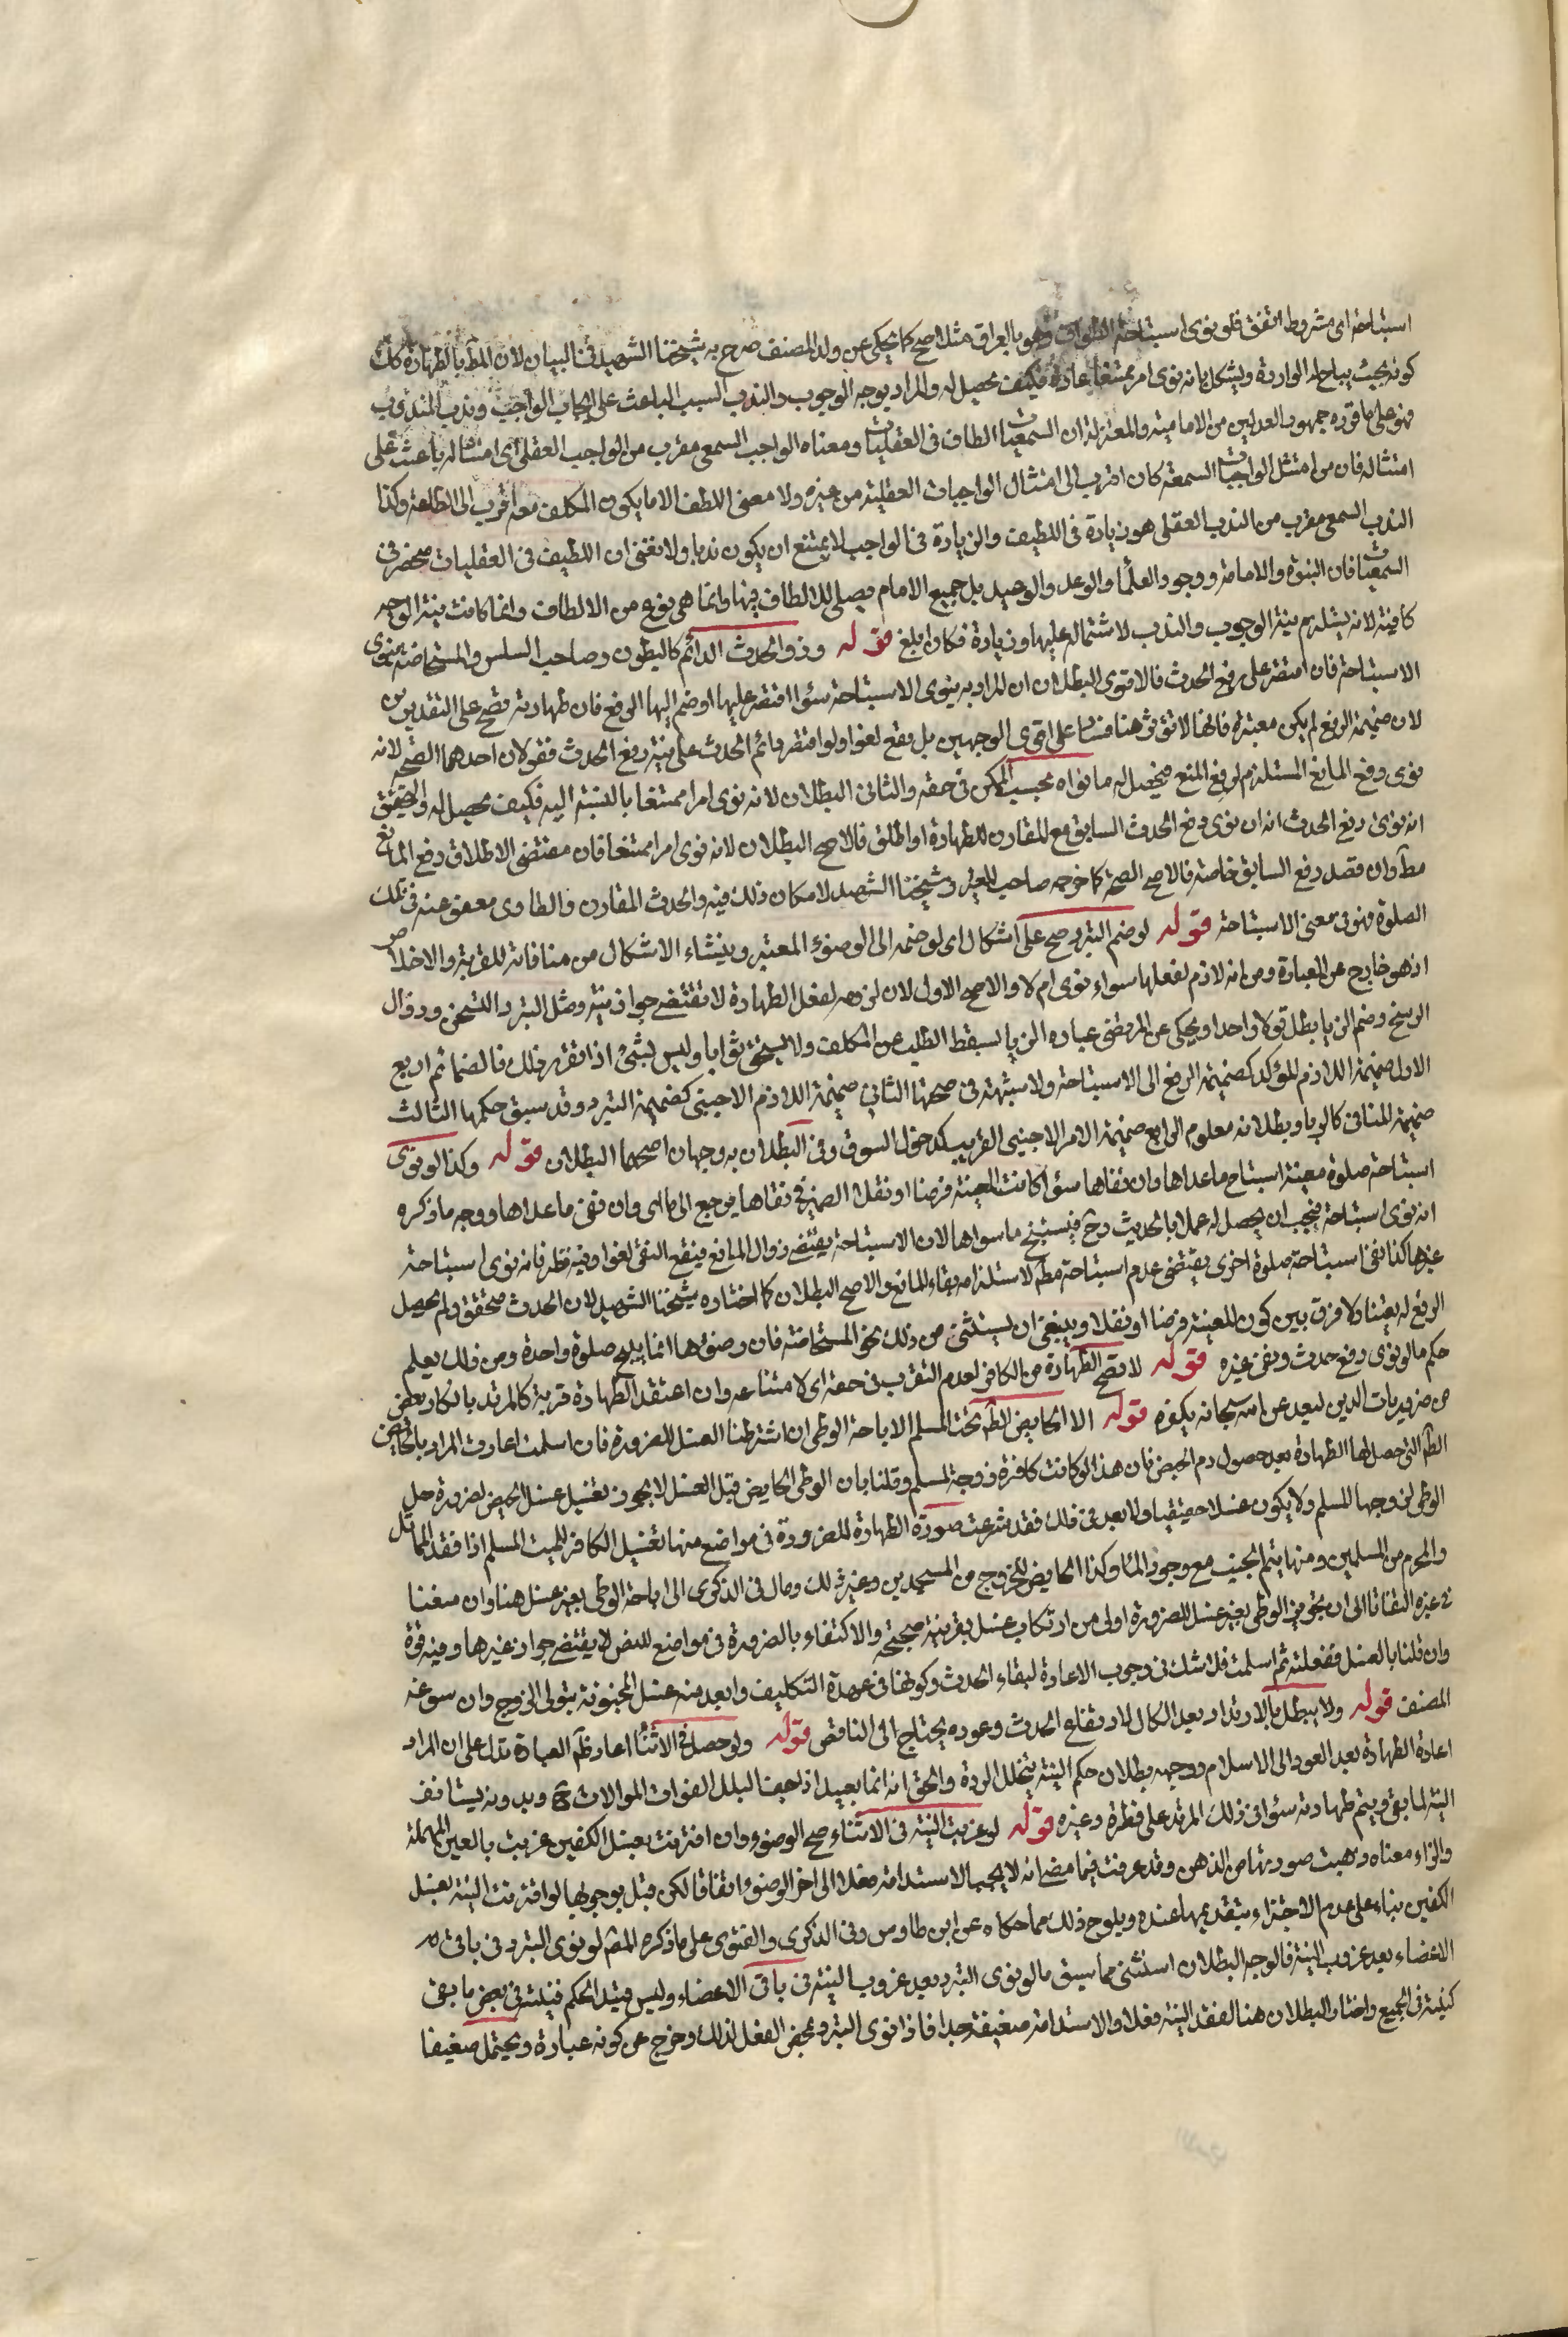 استباحة اى مشروط اتفق فلو نوى استباحة الطواف وهو بالعراق مثلا صح كما يحكى عن ولد المصنف صرح به شيخنا الشهيد فى البيان لان المط بالطهارة كك
كونه بحيث يباح له الواردة ويشكل بانه نوى امرا ممتنعا عادة فكيف يحصل له والمراد بوجه الوجوب والندب السبب الباعث على ايجاب الواجب وندب المندوب
فهو على ما قرره جمهور العدليين من الامامية والمعتزلة ان السمعيات الطاف فى العقليات ومعناه الواجب السمعى مقرب من الواجب العقلى اى امتثاله باعث على
امتثاله فان من امتثل الواجبات السمعية كان اقرب الى امتثال الواجبات العقلية من غيره ولا معنى اللطف الا ما يكون المكلف معه اقرب الى الطاعة وكذا
الندب السمعى مقرب من الندب العقلى هو زيادة فى اللطيف والزيادة فى الواجب لا يمتنع ان يكون ندبا ولا نعنى ان اللطيف فى العقليات منحصر فى
السمعيات فان النبوة والامامة ووجود العلما والوعد والوعيد بل جميع الالام يصلح للالطاف فيها وانما هى نوع من الالطاف وانما كانت نية الوجه
كافية لانه يستلزم نية الوجوب والندب لاشتماله عليها وزيادة فكان ابلغ قوله وذو الحدث الدائم كالبطون وصاحب السلس والمستحاضة ينوى
الاستباحة فان اقتصر على رفع الحدث فالاقوى البطلان ان المراد به ينوى الاستباحة سواء اقتصر عليها او ضم اليها الرفع فان طهارته تصح على التقديرين
لان ضميمة الرفع لم يكن معتبرة فانها لا تؤثر هنا فسادا على اقوى الوجهين بل يقع لغوا ولو اقتصر دائم الحدث على نية رفع الحدث فقولان احدهما الصحة لانه
نوى رفع المانع المستلزم لرفع المنع فيحصل له ما نواه بحسب الممكن فى حقه والثانى البطلان لانه نوى امرا ممتنعا بالنسبة اليه فكيف يحصل له والتحقيق
انه نوى رفع الحدث انه ان نوى رفع الحدث السابق مع المقارن للطهارة او اطلق فالاصح البطلان لانه نوى امرا ممتنعا فان مقتضى الاطلاق رفع المانع
مط وان قصد رفع السابق خاصة فالاصح الصحة كما خرجه صاحب المعتبر وشيخنا الشهيد لامكان ذلك فيه والحدث المقارن والطارى معفو عنه فى تلك
الصلوة فهو فى معنى الاستباحة قوله لو ضم التبرد صح على اشكال اى لو ضمه الى الوضوء المعتبر وينشاء الاشكال من منافاته للقربة والاخلاص
اذ هو خارج عن العبادة ومن انه لازم لفعلها سواء نوى ام لا والاصح الاول لان لزومه لفعل الطهارة لا تقتضى جواز نيته ومثل التبرد التسخن وزوال
الوسخ وضم الريا يبطل قولا واحدا ويحكى عن المرتضى عباره الريا يسقط الطلب عن المكلف ولا يستحق ثوابا وليس بشئ اذا تقرر ذلك فالضمائم اربع
الاول ضميمة اللازم للمؤكد كضميمة الرفع الى الاستباحة ولا شبهة فى صحتها الثانى ضميمة اللازم الاجنبى كضميمة التبرد وقد سبق حكمها الثالث
ضميمة المنافى كالريا وبطلانه معلوم الرابع ضميمة الامر الاجنبى الغريب كدخول السوق وفى البطلان به وجهان اصحهما البطلان قوله وكذا لو نوى
استباحة صلوة معينة استباح ما عداها وان نفاها سواء كانت المعينة فرضا او نفلا الضمير فى نفاها يرجع الى ما اى وان نفى ما عداها ووجه ما ذكره
انه نوى استباحة فيجب ان يحصل له عملا بالحديث وح فيستبيح ما سواها لان الاستباحة يقتضى زوال المانع فيقع النفى لغوا وفيه نظر فانه نوى استباحة
غيرها كذا نفى استباحة صلوة اخرى يقتضى عدم استباحة مط لاستلزامه بقاء المانع والاصح البطلان كما اختاره شيخنا الشهيد لان الحدث متحقق ولم يحصل
الرفع له يقينا ولا فرق بين كون المعينة فرضا او نفلا وينبغى ان يستثنى من ذلك نحو المستحاضة فان وضوءها انما يبيح صلوة واحدة ومن ذلك يعلم
حكم ما لو نوى رفع حدث ونفى غيره قوله لا تصح الطهارة من الكافر لعدم التقرب فى حقه اى لامتناعه وان اعتقد الطهارة قربة كالمرتد بانكار بعض
من ضروريات الدين لبعد عن الله سبحانه بكفره قوله الا الحايض الطهر تحت المسلم الاباحة الوطى ان اشترطنا الغسل للضرورة فان اسلمت اعادت المراد بالحايض
الطهر التى حصل لها الطهارة بعد حصول دم الحيض فان هذا لو كانت كافرة زوجة لمسلم وقلنا بان الوطى الحايض قبل الغسل لا يجوز تغتسل غسل الحيض لضرورة حل
الوطى لزوجها المسلم ولا يكون غسلا حقيقيا ولا بعد فى ذلك فقد شرعت صورة الطهارة للضرورة فى مواضع منها تغسيل الكافر للميت المسلم اذا فقد المماثل
والمحرم من المسلمين ومنها يتم الجنب مع وجود الماء وكذا الحايض للخروج من المسجدين وغير ذلك ومال فى الذكرى الى اباحة الوطى بغير غسل هنا وان منعنا
فى غيره التفاتا الى ان تجويز الوطى بغير غسل للضرورة اولى من ارتكاب غسل بغير نية صحيحة والاكتفاء بالضرورة فى مواضع للنص لا يقتضى جواز غيرها وفيه قوة
وان قلنا بالغسل ففعلته ثم اسلمت فلا شك فى وجوب الاعادة لبقاء الحدث وكونها فى عهدة التكليف وابعد منه غسل المجنونة بتولى الزوج وان سوغه
المصنف قوله ولا يبطل بالارتداد بعد الكمال لارتفاع الحدث وعوده يحتاج الى الناقض قوله ولو حصل فى الاثناء اعاد ظاهر العبارة تدل على ان المراد
اعادة الطهارة بعد العود الى الاسلام ووجهه بطلان حكم النية بتخلل الردة والحق انه انما يعيد اذا جف البلل لفوات الموالات ح وبدونه يستانف
النية لما بقى ويتم طهارته سواء فى ذلك المرتد على فطرة وغيره قوله لو عزبت النية فى الاثناء صح الوضوء وان اقترنت بغسل الكفين عزبت بالعين المهملة
والزاء معناه ذهبت صورتها من الذهن وقد عرفت فيما مضى انه لا يجب الاستدامة فعلا الى اخر الوضوء اتفاقا لكن قيل بوجوبها لو اقترنت النية بغسل
الكفين بناء على عدم الاجتزاء بتقديمها عنده ويلوح ذلك مما حكاه عن ابن طاوس وفى الذكرى والفتوى على ما ذكره المص لو نوى التبرد فى باقى
الاعضاء بعد عزوب النية فالوجه البطلان استثنى مما سبق ما لو نوى التبرد بعد عزوب النية فى باقى الاعضاء وليس قيدا لحكم فنيته فى بعض ما بقى
كنيته فى الجميع واختار البطلان هنا لفقد النية فعلا والاستدامة ضعيفة جدا فاذا نوى التبرد محض الفعل لذلك وخرج عن كونه عبادة ويحتمل ضعيفا